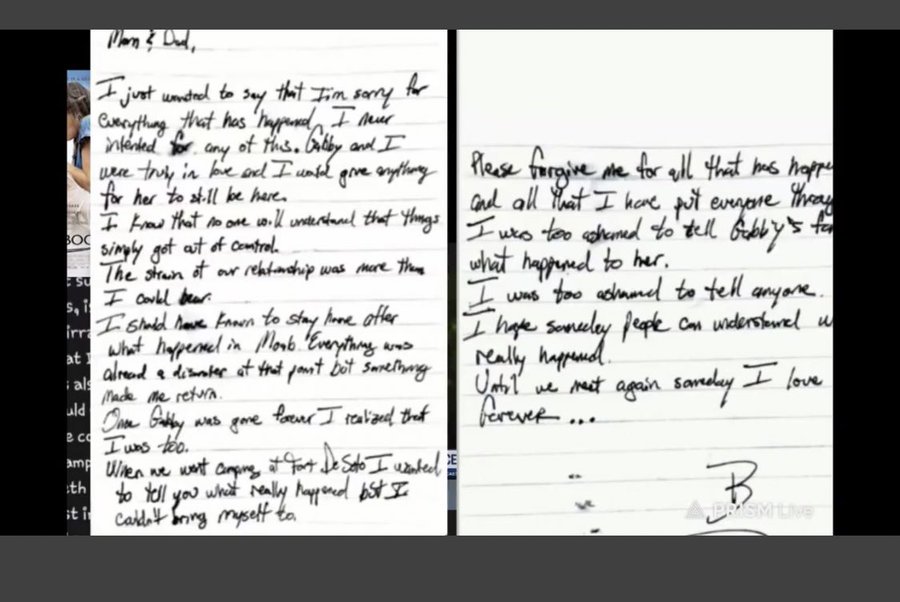 Mom & Dad,
I just wanted to say that I'm sorry for
everything that has happened, I never
intended for any of this. Gabby and I
were truly in love and I would give anything
for her to still be here.
I know that no one will understand that things
simply got out of control.
The strain of our relationship was more then
I could bear.
I should have known to stay home after
what happened in Moab. Everything was
alread a disaster at that point but something
made me return.
Once Gabby was gone forever I realized that
I was too.
When we went camping at Fort DeSoto I wanted
to tell you what really happened but I
couldn't bring myself to.
Please forgive me for all that has happe
and all that I have put everyone throug
I was too ashamed to tell Gabby's fa
what happened to her.
I was too ashamed to tell anyone.
I hope someday people can understand w
really happened.
Until we meet again someday I love
forever...
B
PRISM Live